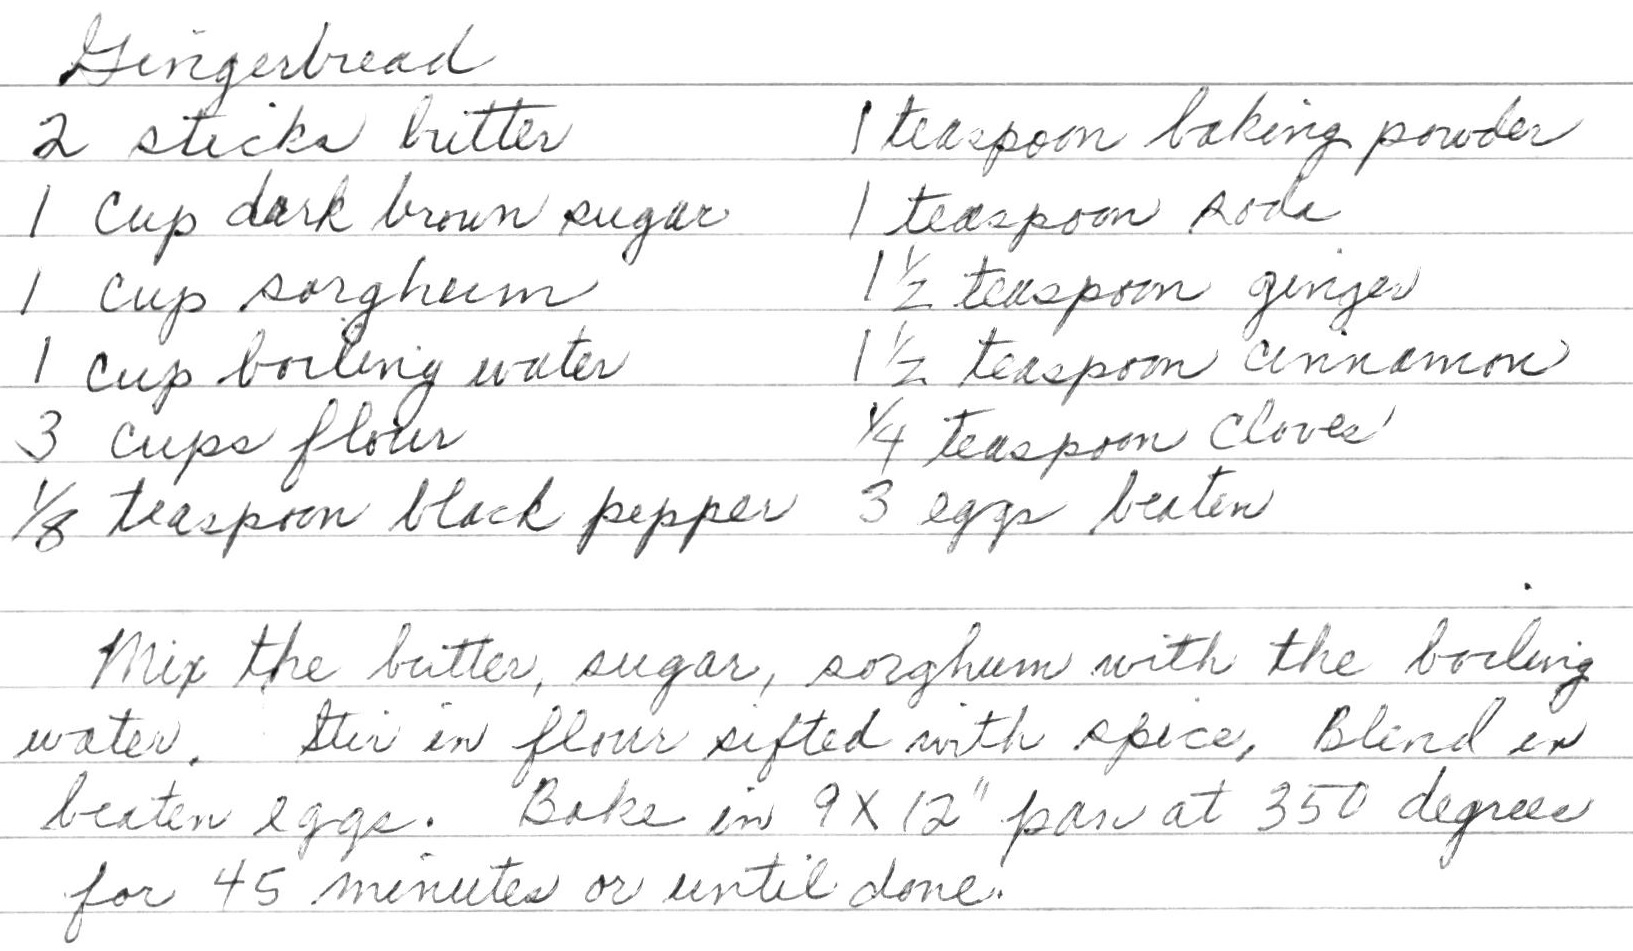 Gingerbread
2 sticks butter
1 cup dark brown sugar
1 cup sorghum
1 cup boiling water
3 cups flour
1/8 teaspoon black pepper
1 teaspoon baking powder
1 teaspoon soda
1 1/2 teaspoon ginger
1 1/2 teaspoon cinnamon
1/4 teaspoon cloves
3 eggs beaten
Mix the butter, sugar, sorghum with the boiling
water. Stir in flour sifted with spice, Blend in
beaten eggs. Bake in 9X12" pan at 350 degrees
for 45 minutes or until done.